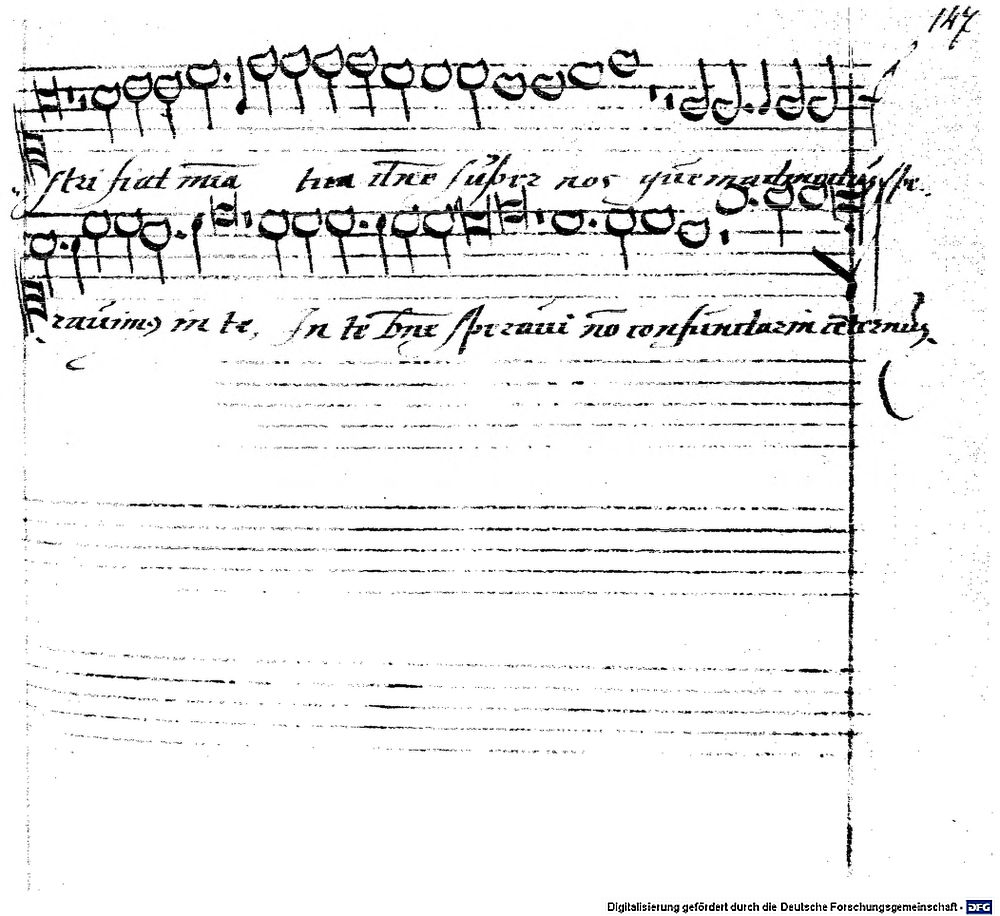 147
stri fiat mīa tua dn̄e sup̄er nos quēmadmodū spe
rauim9 in te, In te dn̄e speraui nō confundar in eternū,
Digitalisierung gefördert durch die Deutsche Forschungsgemeinschaft - DFG